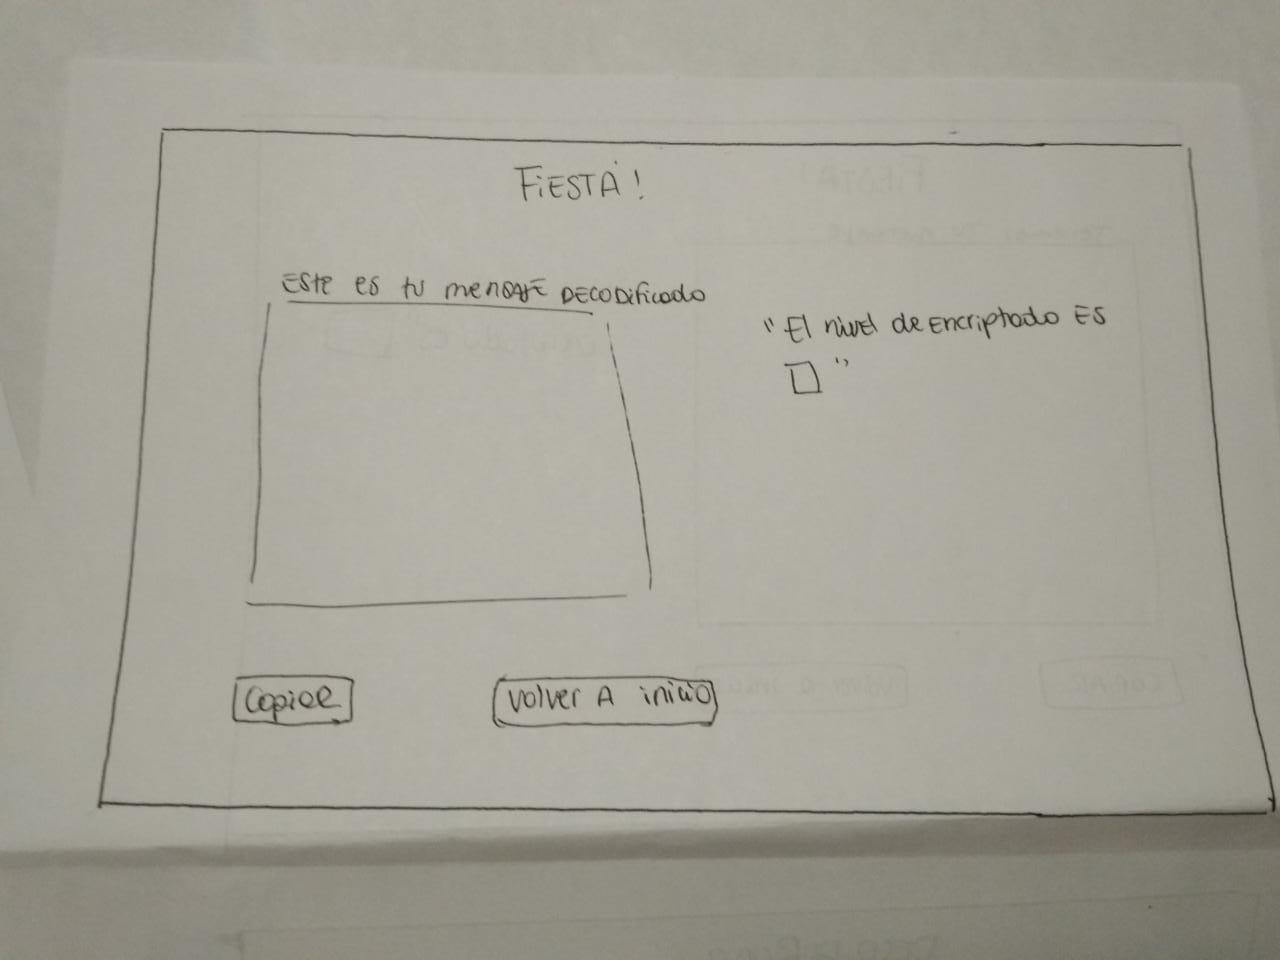 FIESTA!
Este es tu mensaje DECODificado
"El nivel de Encriptado ES
"
Copiar
Volver A inicio